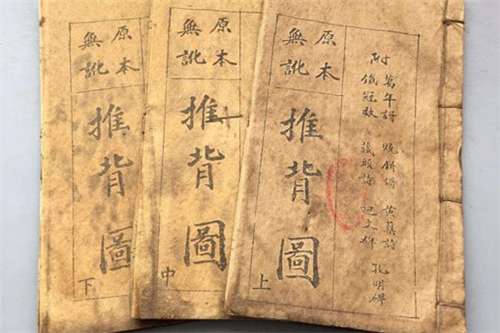 原本
無訛
推背圖
上
附
萬年 燒餅 黃蘗詩
鐵冠數 藏頭詩 孔明碑
原本
無訛
推背圖
中
原本
無訛
推背圖
下